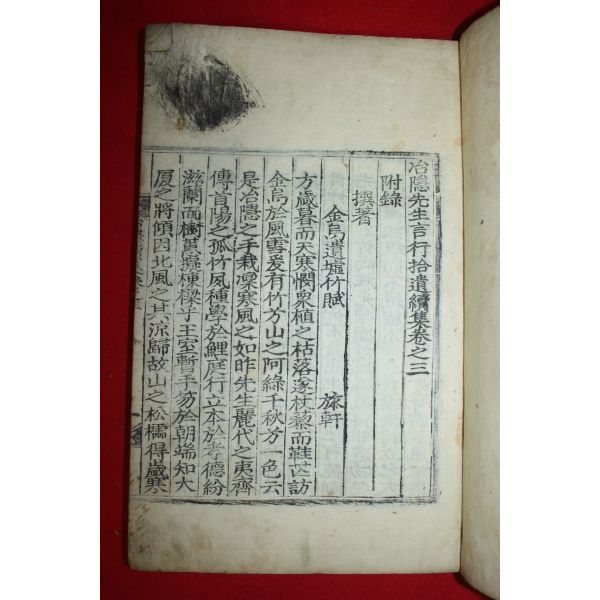 冶隱先生言行拾遺續集卷之三
附錄
撰著
金烏遺墟竹賦 旅軒
方歲暮而天寒憫衆植之枯落遂杖藜而鞋芒訪
金烏於風雪爰有竹方山之阿綠千秋芳一色云
是冶隱之手栽凜寒風之如昨先生麗代之夷齊
傳首陽之孤竹夙種學於鯉庭行立本於孝德紛
滋蘭而樹蕙擬棟樑乎王室暫乎笏於朝端知大
厦之將傾因北風之其涼歸故山之松檽得歲寒